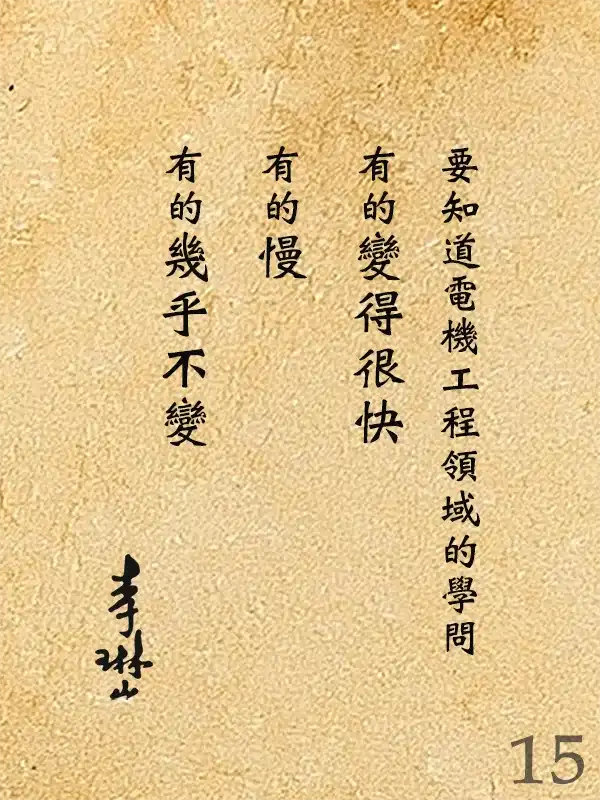 要知道電機工程領域的學問
有的變得很快
有的慢
有的幾乎不變
李琳山
15